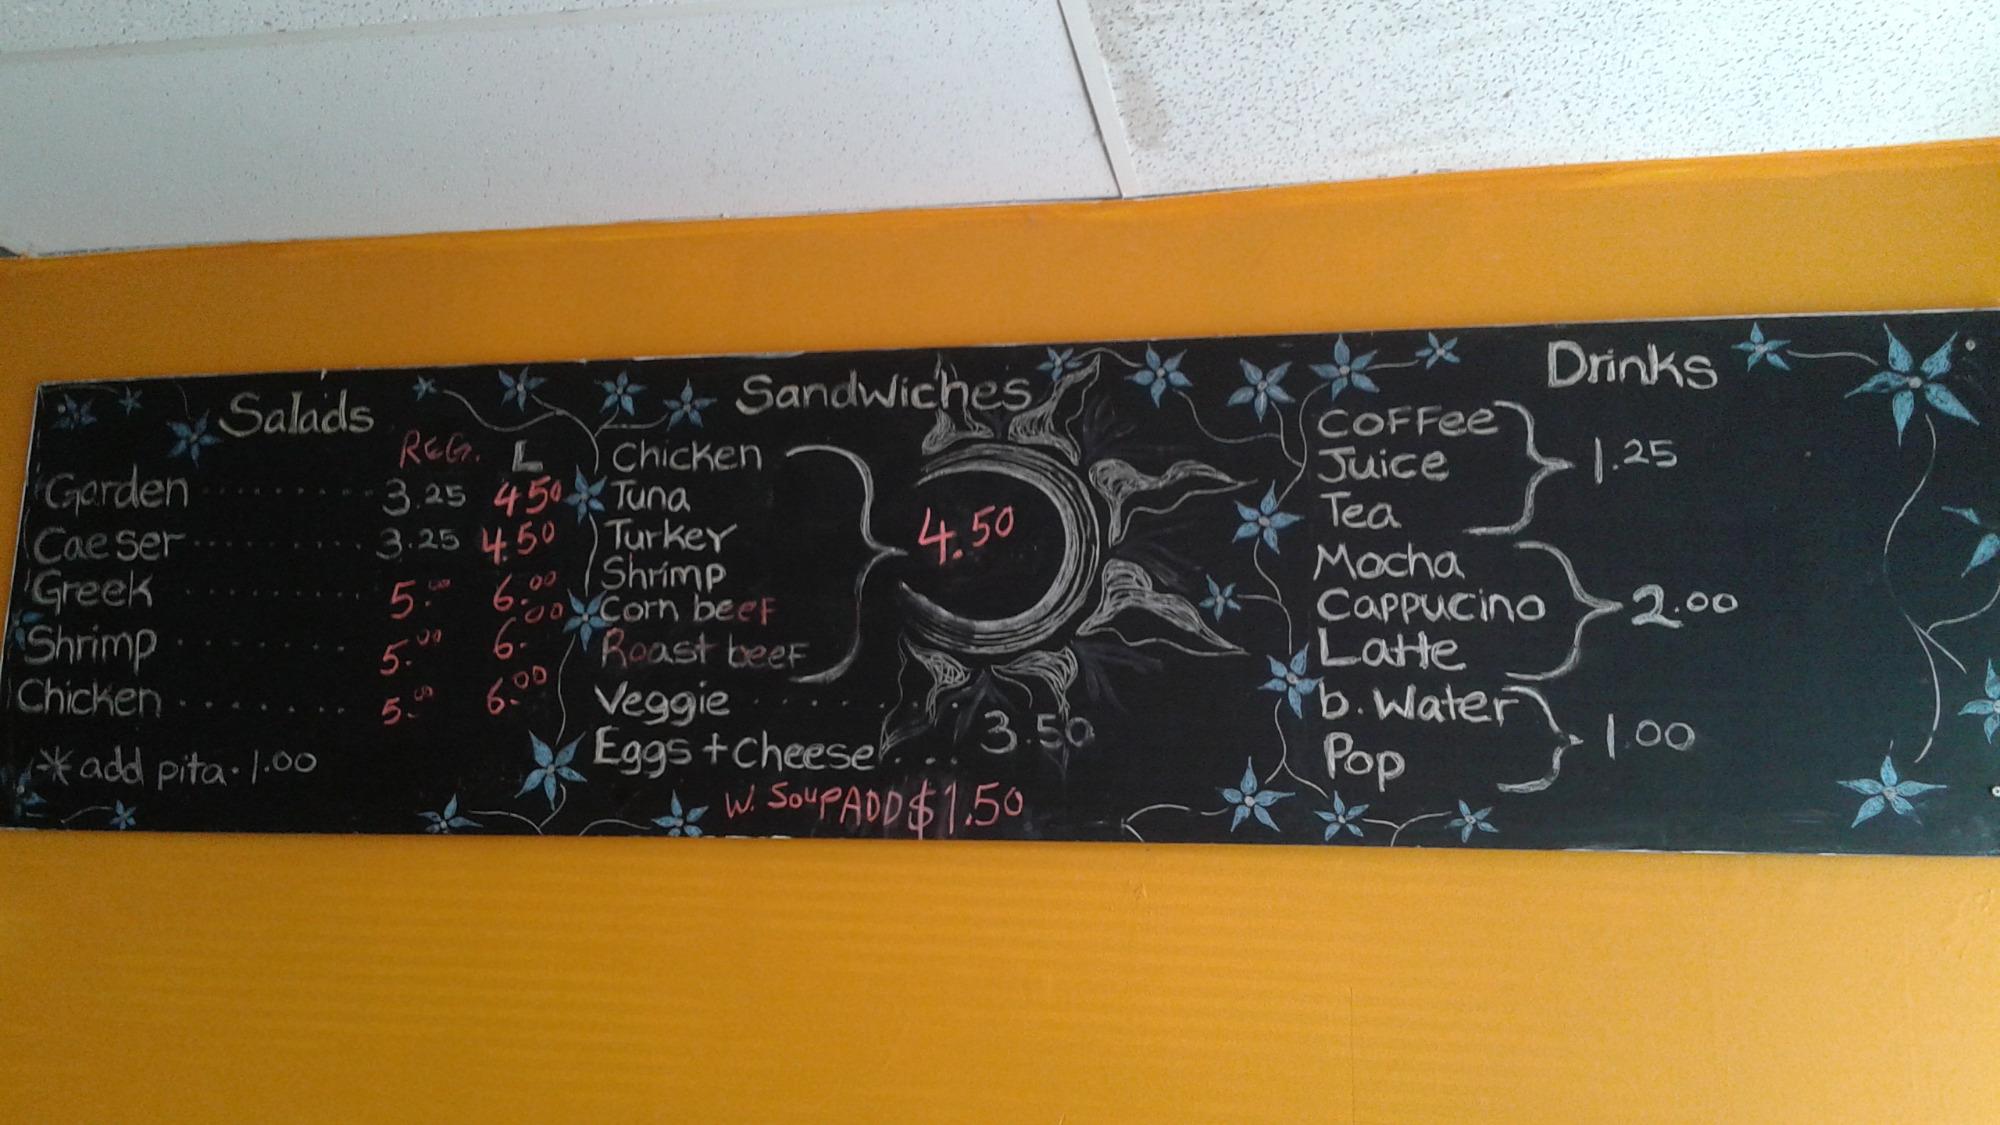 Salads
REG. L
Garden ......... 3.25 4.50
Caeser ......... 3.25 4.50
Greek ......... 5.00 6.00
Shrimp ....... 5.00 6.00
Chicken ....... 5.00 6.00
* add pita . 1.00
Sandwiches
Chicken
Tuna
Turkey
Shrimp
Corn beeF
Roast beeF
4.50
Veggie ........
Eggs + Cheese ... 3.50
W. SouP ADD $1.50
Drinks
CoFFee
Juice
Tea
1.25
Mocha
Cappucino
Latte
2.00
b. Water
Pop
1.00